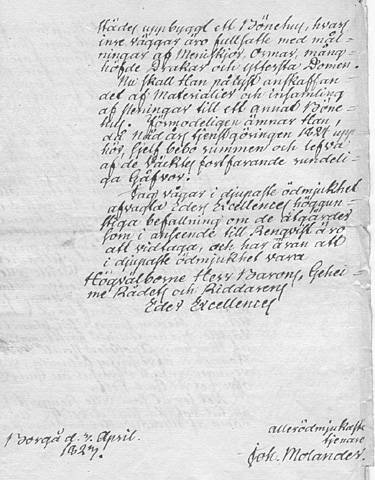 städes uppbyggt ett Bönehus, hvars
inre väggar äro fullsatte med mål-
ningar af Meniskjor, Ormar, mång-
höfde Drakar och yttersta Domen.
Nu skall Han påtyst anskaffan-
det af Materialier och insamling
af Penningar till ett annat Böne-
hus. Förmodeligen ämnar Han,
då Nådårs tjenstgöringen 1827 upp-
hör, sjelf bebo rummen och lefva
af de väcktes fortfarande rundeli-
ga Gåfvor.
Jag vågar i djupaste ödmjukhet
afvagta Eders Excellences höggun-
stiga befallning om de åtgärder
som i anseende till Renqvist äro
att vidtaga, och har äran att
i djupaste ödmjukhet vara
Högvälborne Herr Barons, Gehei-
me Rådets och Riddarens
Eder Excellences
Borgå d. 7. April.
1827.
allerödmjukaste
tjenare
Joh. Molander.